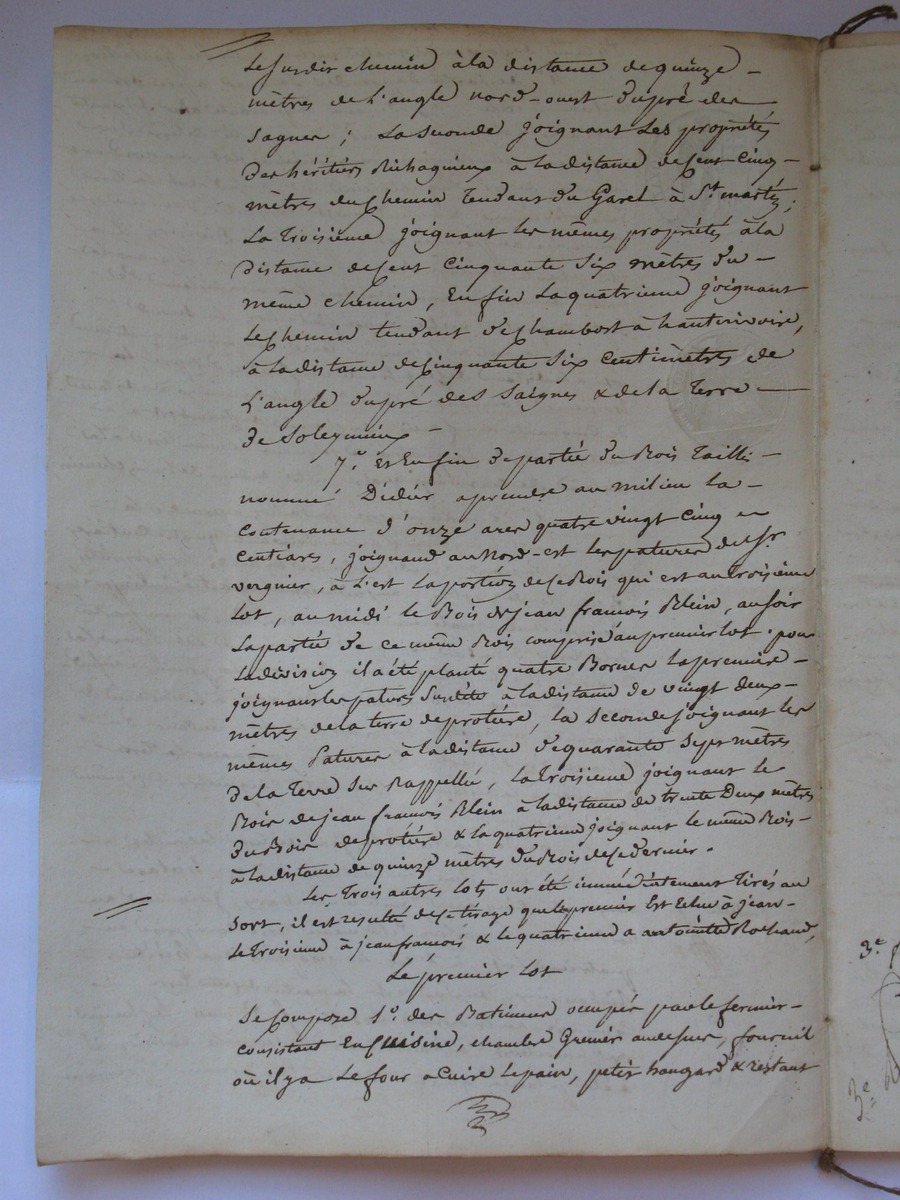 Le susdit chemin à la distance de quinze -
mètres de L'angle nord-ouest du pré des
Sagnes ; La seconde joignant Les propriétés
Des héritiers à la distance de Cent Cinq -
mètres du Chemin Tendant du Garel à St. martin ;
La Troisieme joignant les mêmes propriétés à la
Distance de Cent Cinquante Six mètres du -
même chemin, Enfin La quatrieme joignant
Le Chemin tendant de Chambost à hauterivoire,
à la distance de Cinquante Six Centimètres de
L'angle du pré des Saignes & de la Terre -
de Soleymieux -
7.° et Enfin De partie du Bois Taillis -
nommé Didier a prendre au milieu La -
Contenance d'onze ares quatre vingt Cinq
Centiares, joignand au Nord-est les patures du Sr.
vergnier, à L'est La portion de Ce Bois qui est au troisieme
Lot, au midi le Bois de jean francois Blein, au soir
La partie de ce même Bois comprise au premier Lot . pour
La division il a été planté quatre Bornes La premiere -
joignant les patures Susdite à la distance de vingt deux -
mètres de la terre de protiere, la Seconde joignant les
mêmes Patures à la distance de quarante Sept mètres
De la Terre Sus Rappellée, La Troisieme joignant le
Bois de jean francois Blein à la distance de trente Deux mètres
du Bois de protiere & la quatrieme joignant le même Bois -
à la distance de quinze mètres du Bois de Ce dernier .
Les Trois autres Lots ont été immédiatement Tirés au
Sort, il est resulté de Ce tirage que le premier Est Echu à jean -
Le Troisieme à jean francois & le quatrieme a antoinette Rochand,
Le premier Lot
Se Compose 1.° des Batiments occupés par le fermier -
consistant En Cuisine, chambre Grenier au dessus, fournil
où il y a Le four a Cuire Le pain, petit hangard & restant
3.e
3.e